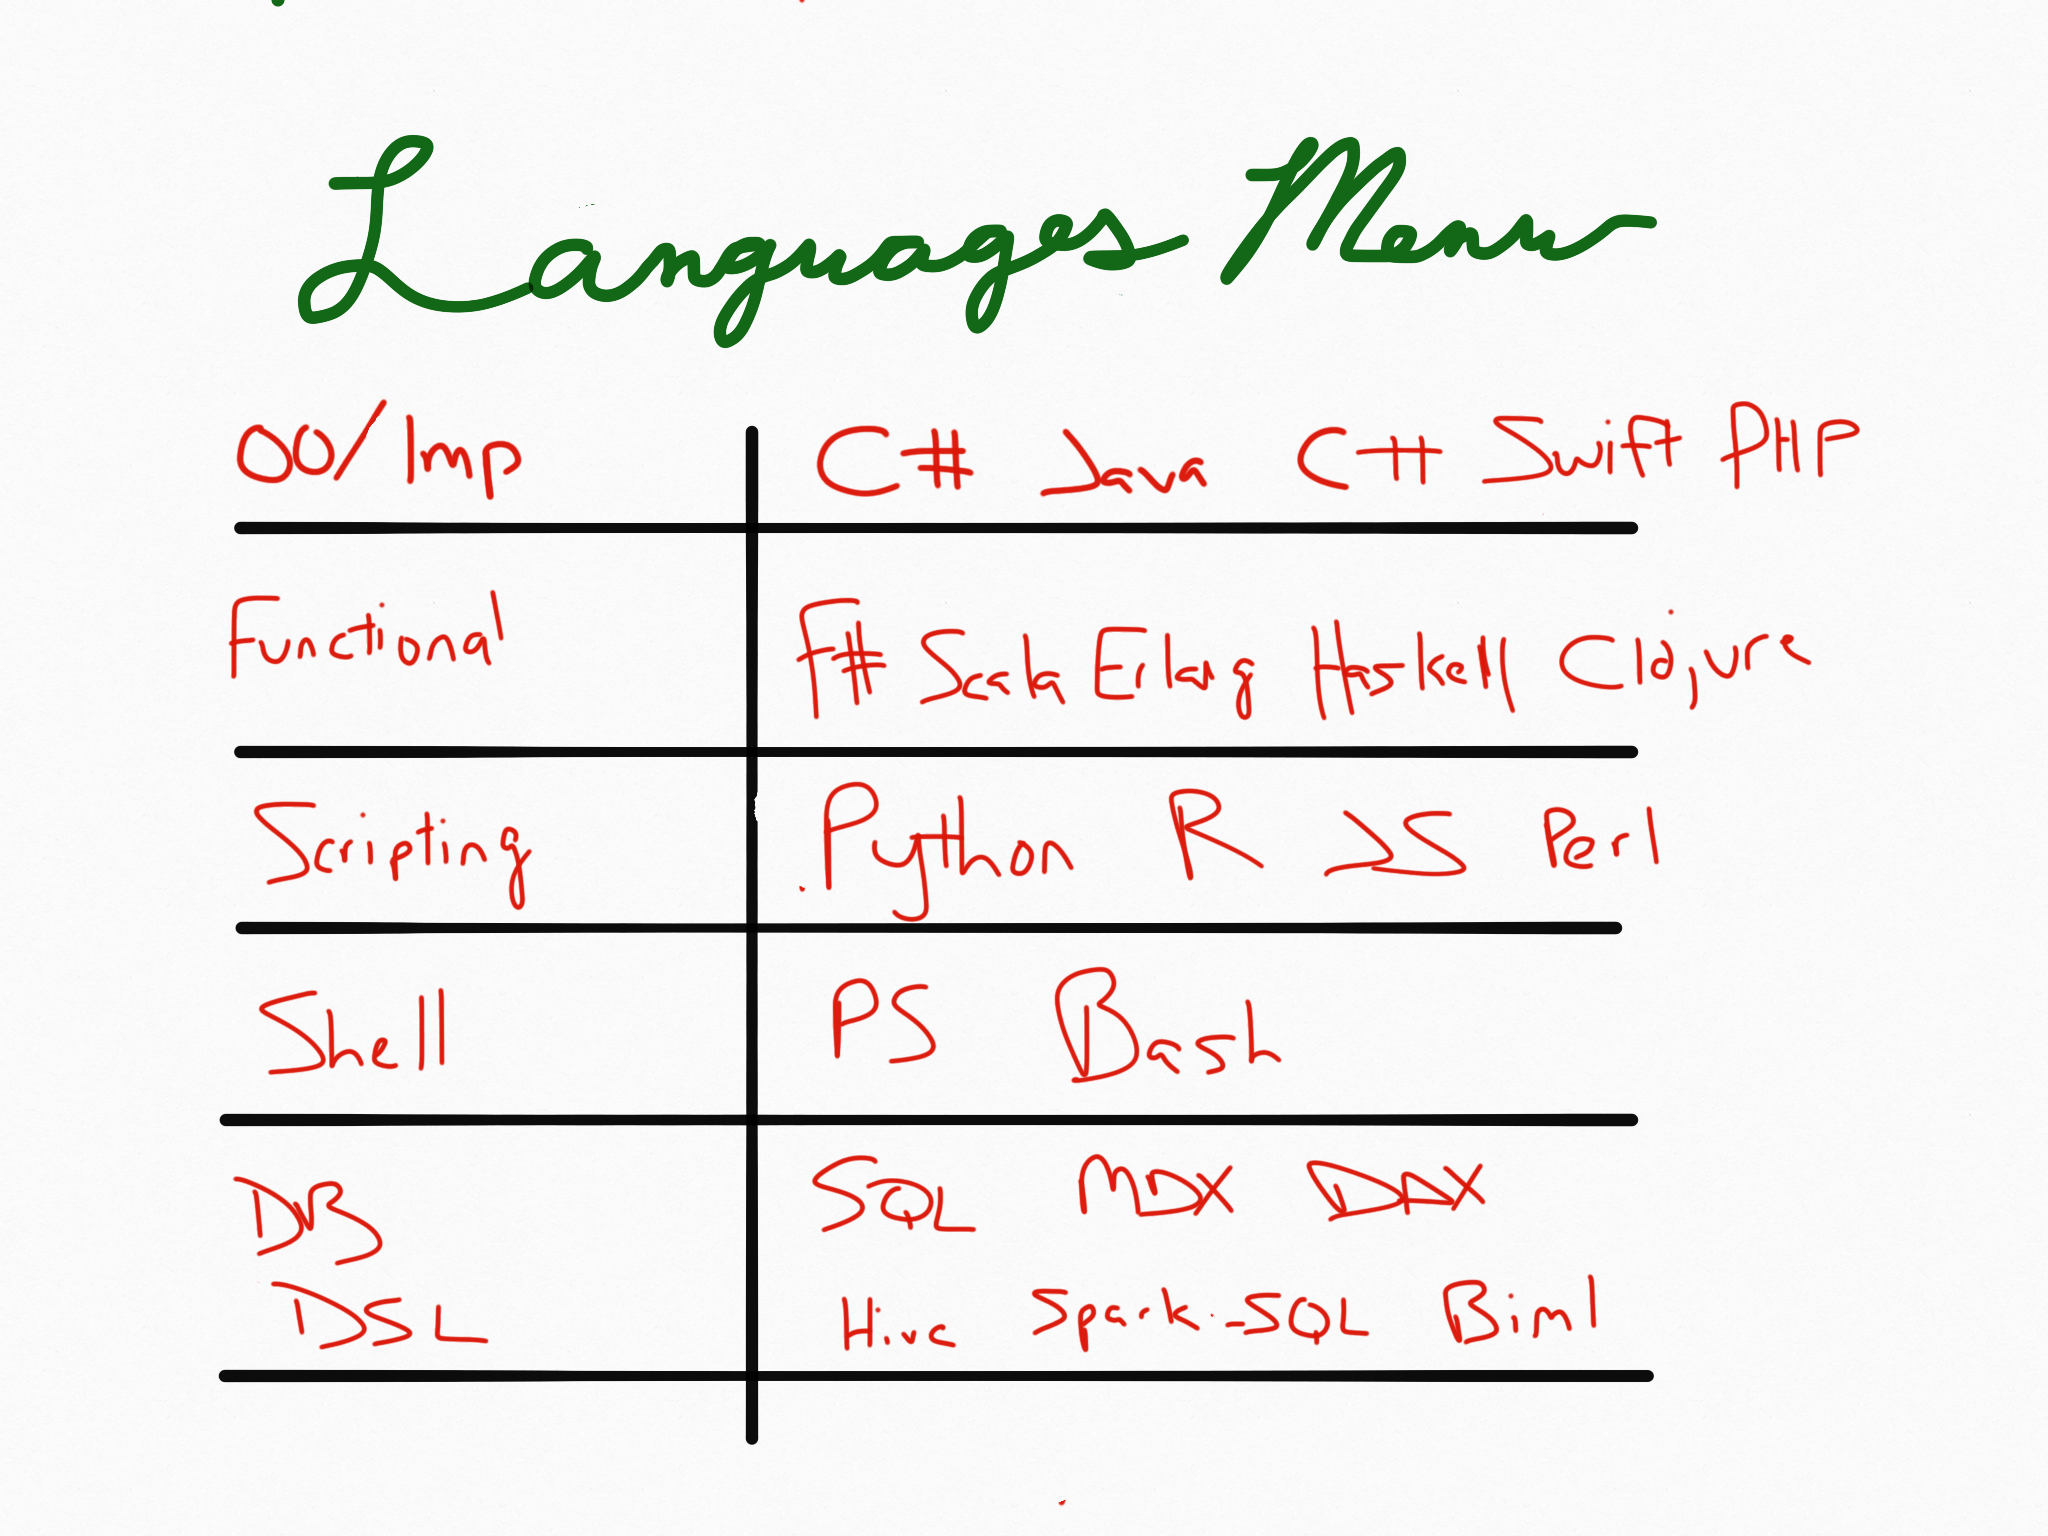 Languages Menu
OO/Imp C# Java C++ Swift PHP
Functional F# Scala Erlang Haskell Clojure
Scripting Python R JS Perl
Shell PS Bash
DB SQL MDX DAX
DSL Hive Spark-SQL Biml